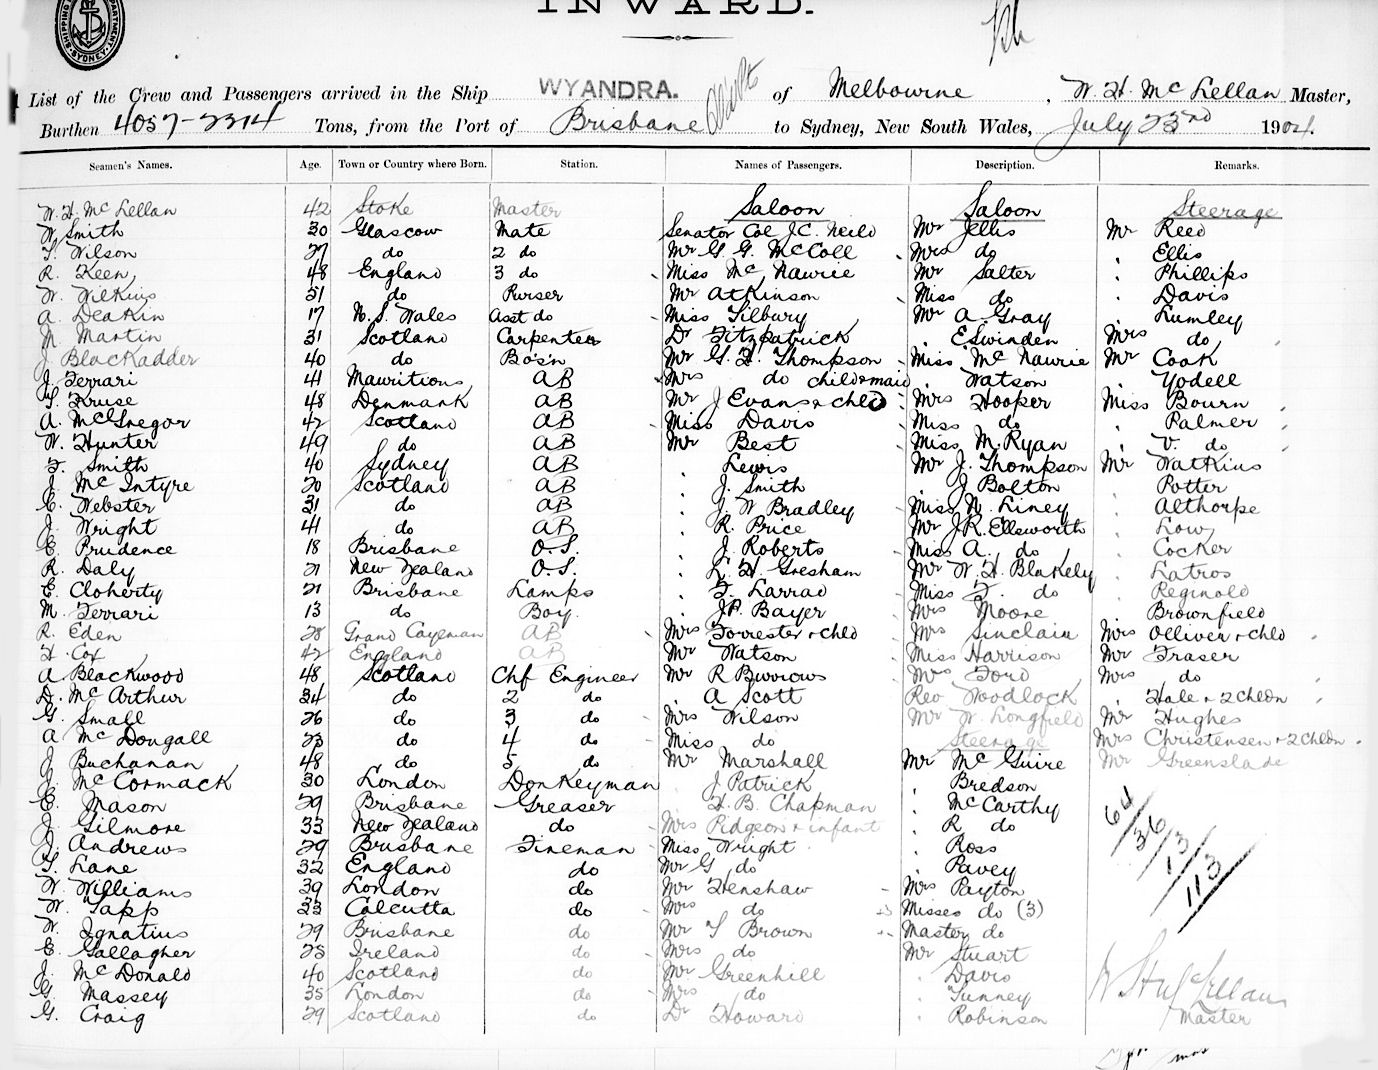 INWARD.
SHIPPING DEPARTMENT SYDNEY
List of the Crew and Passengers arrived in the Ship WYANDRA. of Melbourne, W. H. McLellan Master,
Burthen 4057-2314 Tons, from the Port of Brisbane to Sydney, New South Wales, July 23rd 1904.
Seamen's Names. Age. Town or Country where Born. Station. Names of Passengers. Description. Remarks.
W. H. McLellan 42 Stoke Master Saloon Saloon Steerage
W Smith 30 Glascow Mate Senator Col J.C. Neild Mr Jellis Mr Reed
T. Wilson 27 do 2 do Mr G. G. McColl Mrs do " Ellis
R. Keen 48 England 3 do Miss McNaurie Mr Salter " Phillips
W. Wilkins 51 do Purser Mr Atkinson Miss do " Davis
A. Deakin 17 N.S. Wales Asst do Miss Tilbury Mr A. Gray " Lumley
M Martin 31 Scotland Carpenter Dr Fitzpatrick " E Swinden Mrs do
J Blackadder 40 do Bosn Mr G. H. Thompson Miss McNaurie Mr Cook
J. Ferrari 41 Mauritious AB Mrs do child & maid " Watson " Yodell
T. Kruse 48 Denmark AB Mr J Evans & chld Mrs Hooper Miss Bourn
A. McGregor 42 Scotland AB Miss Davis Miss do " Palmer
W. Hunter 49 do AB Mr Best Miss M. Ryan " V. do
F. Smith 40 Sydney AB " Lewis Mr J. Thompson Mr Watkins
J. McIntyre 20 Scotland AB " J. Smith " J Bolton " Potter
E. Webster 31 do AB " J. W Bradley Miss N. Liney " Althorpe
J. Wright 41 do AB " R. Price Mr J.R. Ellsworth " Low
E. Prudence 18 Brisbane O.S. " J. Roberts Miss A. do " Cocker
R. Daly 21 New Zealand O.S. " L. H. Gresham Mr W. H. Blakely " Latros
E. Cloherty 21 Brisbane Lamps " F. Larrad Miss F. do " Reginold
M. Ferrari 13 do Boy " J.P. Bayer Mrs Moore Brownfield
R. Eden 28 Grand Cayeman AB Mrs Forrester & chld Mrs Sinclair Mrs Olliver & chld
H. Cox 42 England AB Mr Watson Miss Harrison Mr Fraser
A Blackwood 48 Scotland Chf Engineer Mr R Burrows Mrs Ford Mrs do
D. McArthur 34 do 2 do " A Scott Rev Woodlock " Hale & 2 Chldn
G. Small 26 do 3 do Mrs Wilson Mr W. Longfield Mr Hughes
A McDougall 23 do 4 do Miss do Steerage Mrs Christensen & 2 Chldn
J Buchanan 48 do 5 do Mr Marshall Mr McGuire Mr Greenslade
J McCormack 30 London Donkeyman " J Patrick " Bredson
E. Mason 29 Brisbane Greaser " H. B. Chapman " McCarthy 64
J. Gilmore 33 New Zealand do Mrs Pidgeon & infant " R do 36
J. Andrews 29 Brisbane Fireman Miss Wright " Ross 13
T. Lane 32 England do Mr G do " Pavey 113
W. Williams 39 London do Mr Henshaw Mrs Payton
W. Tapp 23 Calcutta do Mrs do Misses do (3)
W. Ignatius 29 Brisbane do Mr T Brown Master do
E. Gallagher 25 Ireland do Mrs do Mr Stuart
J. McDonald 40 Scotland do Mr Greenhill " Davis
G. Massey 35 London do Mrs do " Tunney
G. Craig 29 Scotland do Dr Howard " Robinson Master